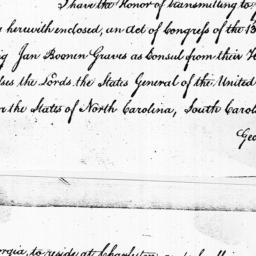 I have the Honor of transmitting to
herewith enclosed, an Act of Congress of the 13
Jan Boonen Graves as Consul from their H
the Lords the States General of the United
the States of North Carolina, South Carol
Geo
to reside at Charleston